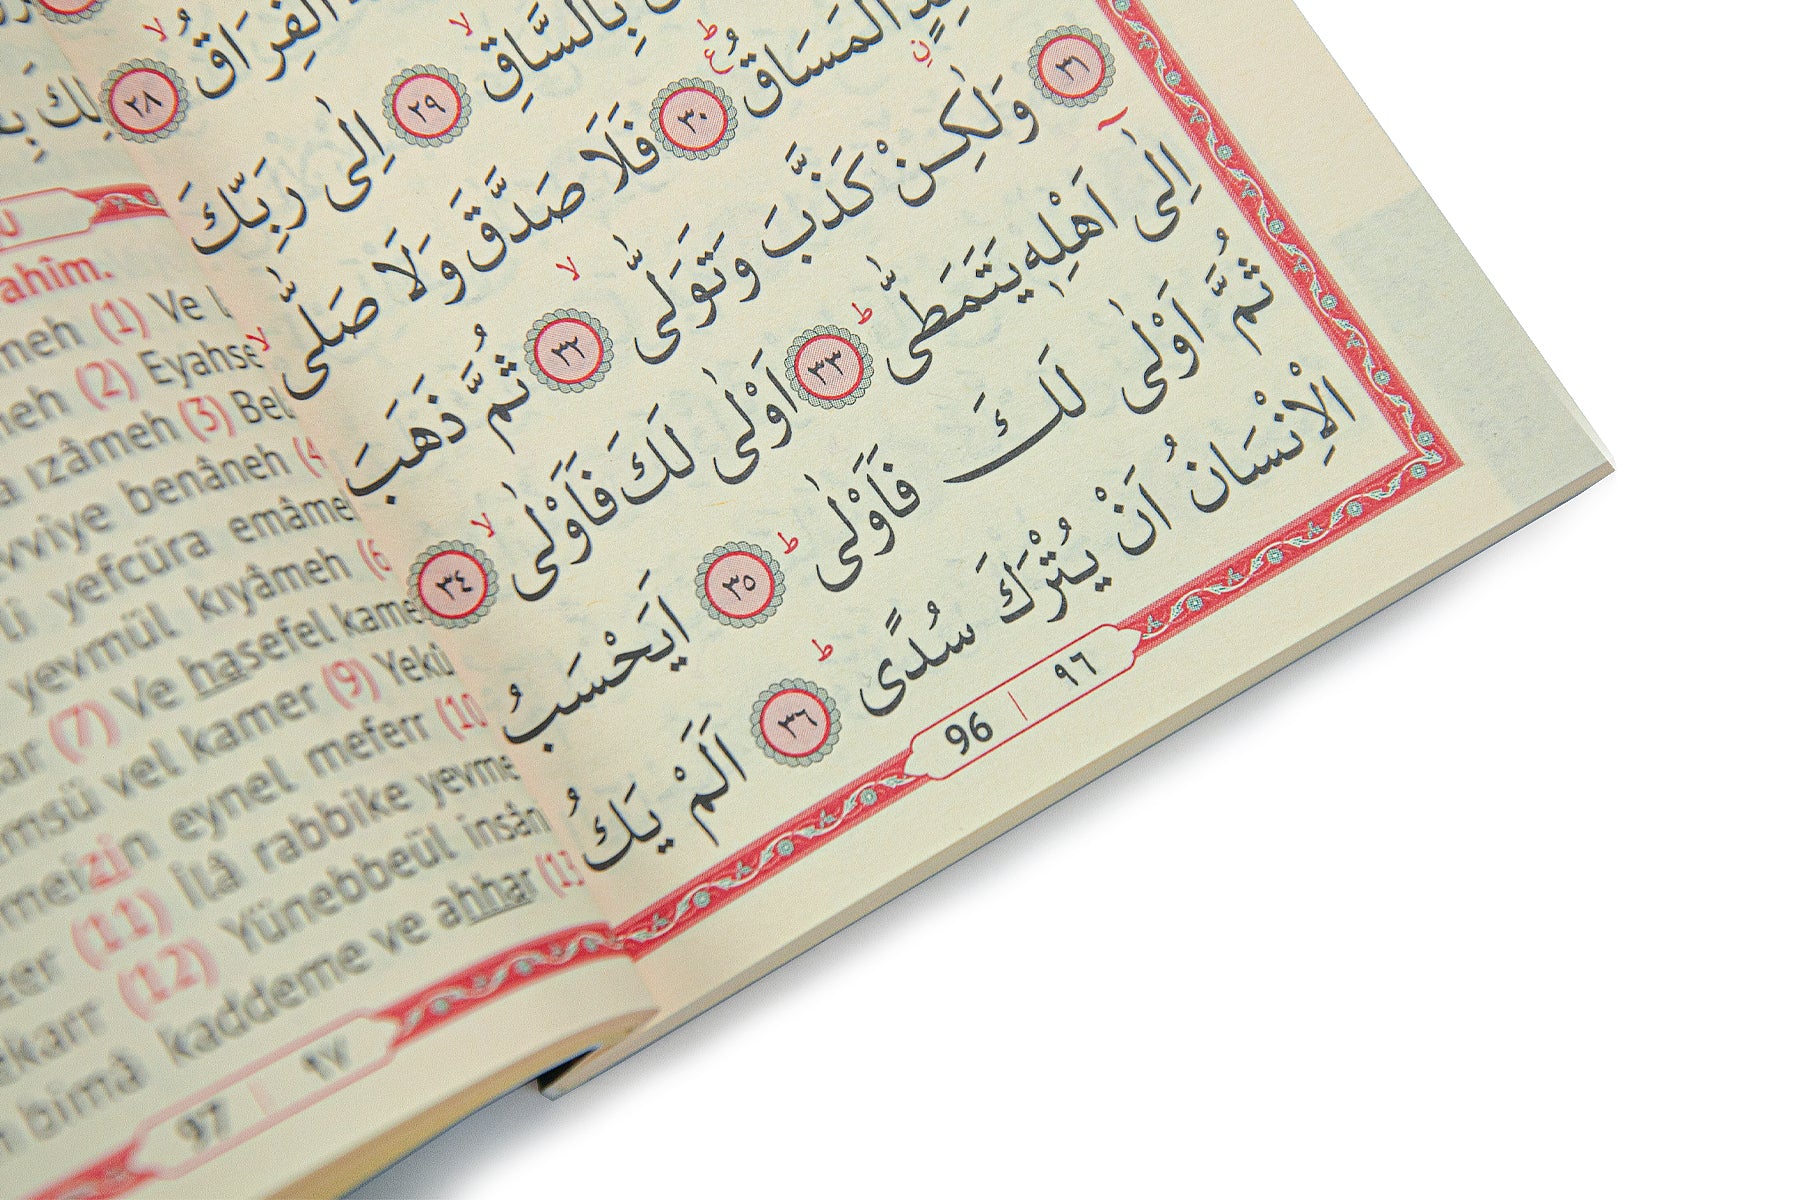 الْفِرَاقُۙ ﴿٢٨﴾
بِالسَّاقِۙ ﴿٢٩﴾ اِلٰى رَبِّكَ
الْمَسَاقُۜ ﴿٣٠﴾ فَلَا صَدَّقَ وَلَا صَلّٰىۙ
﴿٣١﴾ وَلٰكِنْ كَذَّبَ وَتَوَلّٰىۙ ﴿٣٢﴾ ثُمَّ ذَهَبَ
اِلٰٓى اَهْلِه۪ يَتَمَطّٰىۜ ﴿٣٣﴾ اَوْلٰى لَكَ فَاَوْلٰىۙ ﴿٣٤﴾
ثُمَّ اَوْلٰى لَكَ فَاَوْلٰىۜ ﴿٣٥﴾ اَيَحْسَبُ
الْاِنْسَانُ اَنْ يُتْرَكَ سُدًىۜ ﴿٣٦﴾ اَلَمْ يَكُ
96 | ٩٦
ahîm.
meh (1) Ve
meh (2) Eyahse
ızâmeh (3) Bel
vviye benâneh (4
yefcüra emâme
yevmül kıyâmeh (6
(7) Ve hasefel kame
vel kamer (9) Yekû
eynel meferr (10
(11) İlâ rabbike yevme
(12) Yünebbeül insân
bimâ kaddeme ve ahhar (13
97 | ٩٧